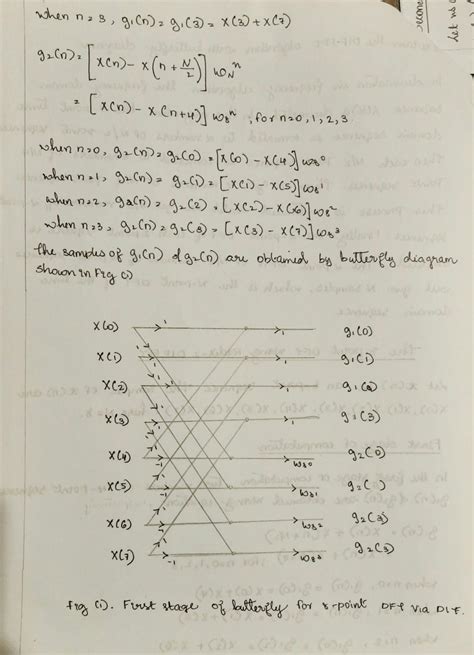 when n = 3, g1(n) = g1(3) = x(3) + x(7)
g2(n) = [x(n) - x(n + N/2)] WN^n
= [x(n) - x(n+4)] w8^n ; for n = 0, 1, 2, 3
when n=0, g2(n) = g2(0) = [x(0) - x(4)] w8^0
when n=1, g2(n) = g2(1) = [x(1) - x(5)] w8^1
when n=2, g2(n) = g2(2) = [x(2) - x(6)] w8^2
when n=3, g2(n) = g2(3) = [x(3) - x(7)] w8^3
The samples of g1(n) & g2(n) are obtained by butterfly diagram
shown in Fig (1)
x(0) 1 1 g1(0)
x(1) 1 1 g1(1)
x(2) 1 g1(2)
x(3) g1(3)
x(4) -1 w8^0 g2(0)
x(5) -1 w8^1
x(6) -1 w8^2 g2(3)
x(7) -1 w8^3 g2(3)
Fig (1). First stage of butterfly for 8-point DFT via DIF.